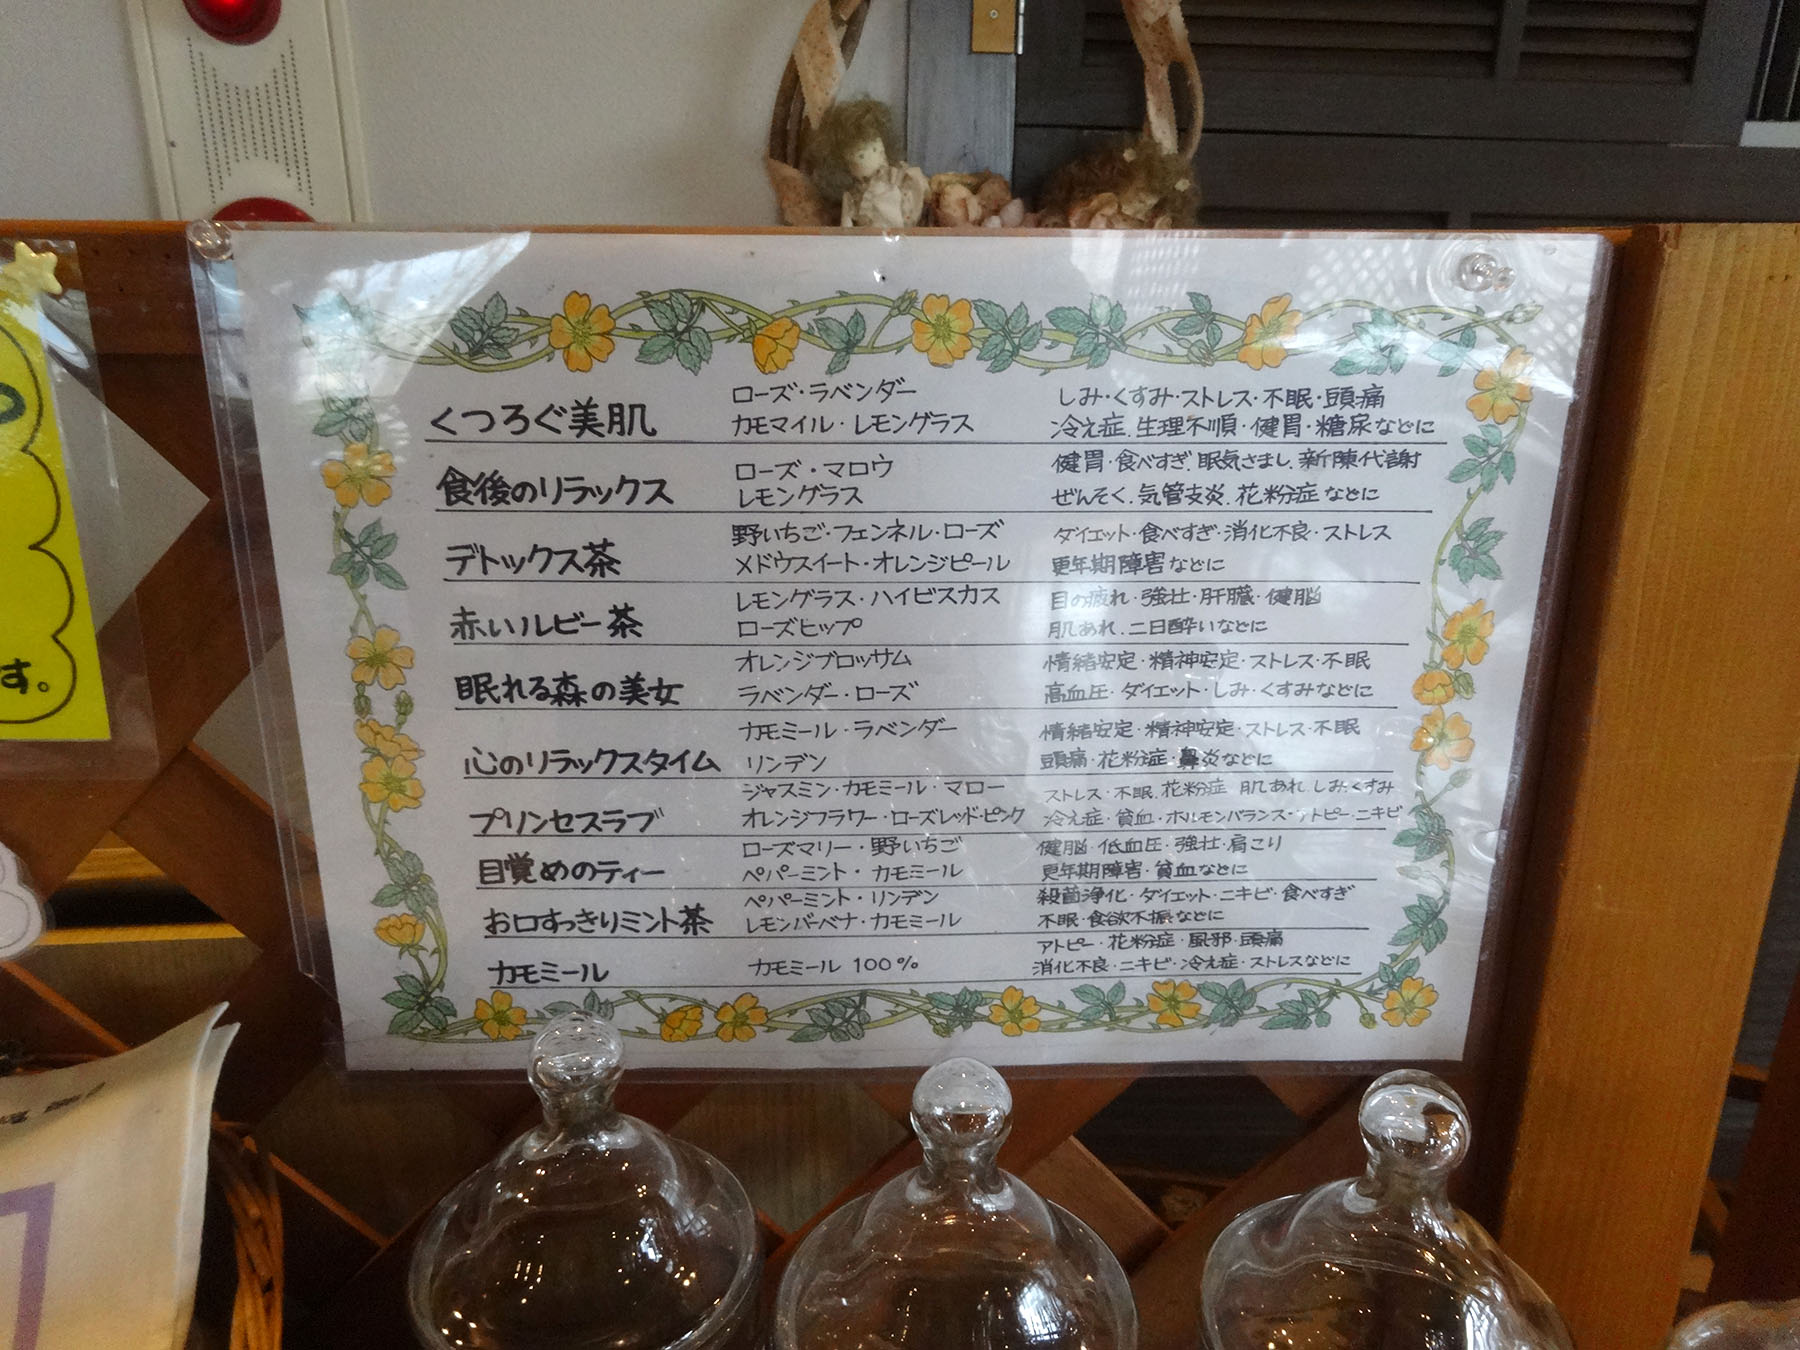 くつろぐ美肌
ローズ・ラベンダー
カモマイル・レモングラス
しみ・くすみ・ストレス・不眠・頭痛
冷え症・生理不順・健胃・糖尿などに
食後のリラックス
ローズ・マロウ
レモングラス
健胃・食べすぎ・眠気さまし・新陳代謝
ぜんそく・気管支炎・花粉症などに
デトックス茶
野いちご・フェンネル・ローズ
メドウスイート・オレンジピール
ダイエット・食べすぎ・消化不良・ストレス
更年期障害などに
赤いルビー茶
レモングラス・ハイビスカス
ローズヒップ
目の疲れ・強壮・肝臓・健脳
肌あれ・二日酔いなどに
眠れる森の美女
オレンジブロッサム
ラベンダー・ローズ
情緒安定・精神安定・ストレス・不眠
高血圧・ダイエット・しみ・くすみなどに
心のリラックスタイム
カモミール・ラベンダー
リンデン
情緒安定・精神安定・ストレス・不眠
頭痛・花粉症・鼻炎などに
プリンセスラブ
ジャスミン・カモミール・マロー
オレンジフラワー・ローズレッド・ピンク
ストレス・不眠・花粉症・肌あれ・しみ・くすみ
冷え症・貧血・ホルモンバランス・アトピー・ニキビ
目覚めのティー
ローズマリー・野いちご
ペパーミント・カモミール
健脳・低血圧・強壮・肩こり
更年期障害・貧血などに
お口すっきりミント茶
ペパーミント・リンデン
レモンバーベナ・カモミール
殺菌浄化・ダイエット・ニキビ・食べすぎ
不眠・食欲不振などに
カモミール
カモミール 100%
アトピー・花粉症・風邪・頭痛
消化不良・ニキビ・冷え症・ストレスなどに
す。